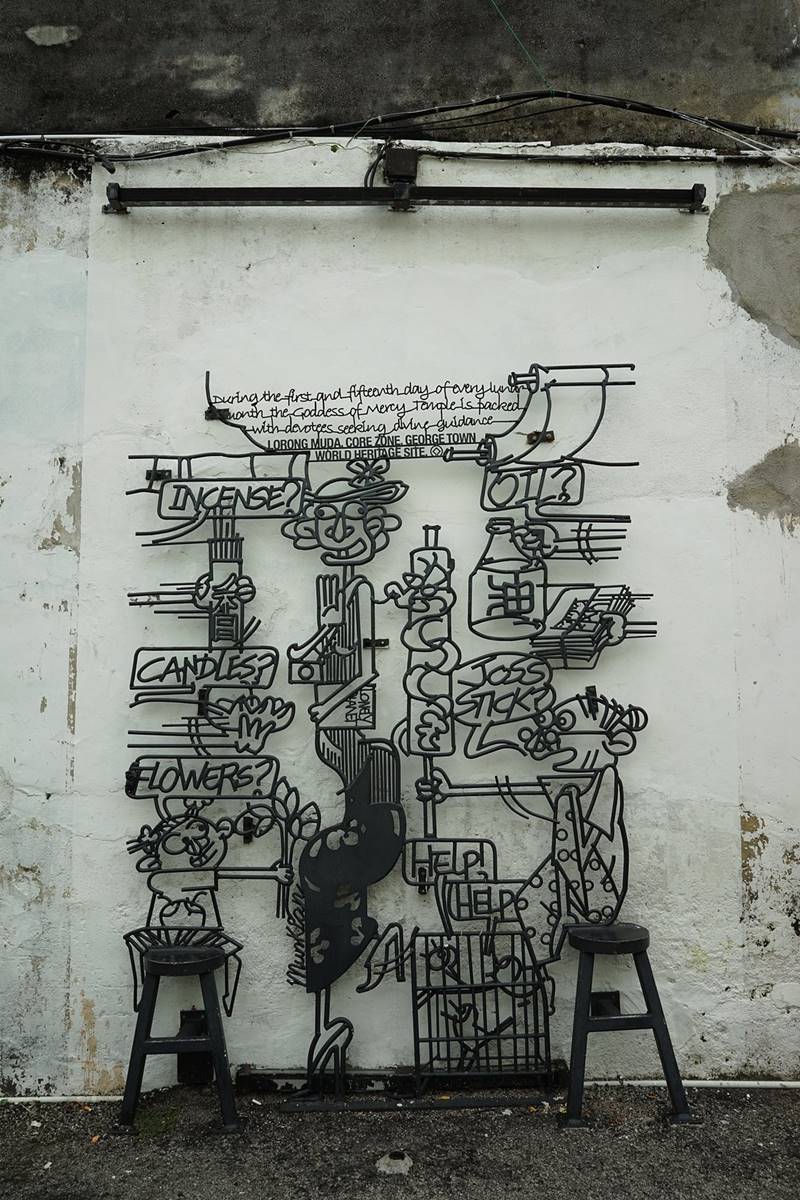 During the first and fifteenth day of every lunar
month the Goddess of Mercy Temple is packed
with devotees seeking divine guidance
LORONG MUDA, CORE ZONE, GEORGE TOWN
WORLD HERITAGE SITE.
INCENSE?
OIL?
油
香
CANDLES?
JOSS
STICK?
LONELY
PLANET
FLOWERS?
HELP!
HELP